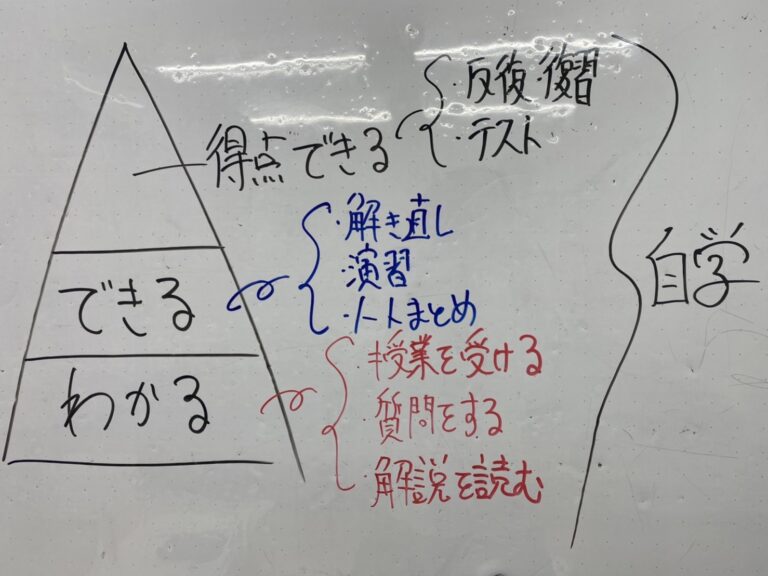 得点できる
・反復・復習
・テスト
できる
・解き直し
・演習
・ノートまとめ
わかる
・授業を受ける
・質問をする
・解説を読む
自学